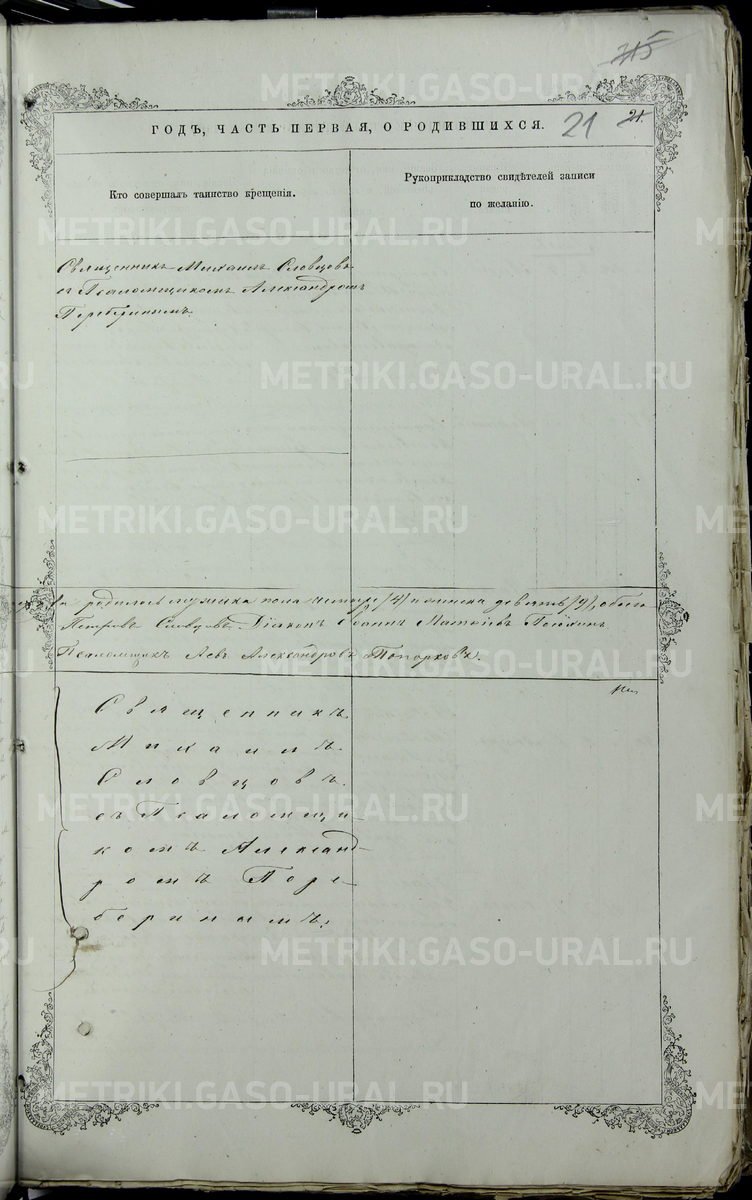 715
ГОДЪ, ЧАСТЬ ПЕРВАЯ, О РОДИВШИХСЯ.
21
21.
Кто совершалъ таинство крещенія.
Рукоприкладство свидѣтелей записи
по желанію.
Священникъ Михаилъ Словцовъ
съ Псаломщикомъ Александромъ
родилось мужска пола четыре (4) и женска девять (9), обоего
Петровъ Словцовъ. Діаконъ Іоаннъ
Псаломщикъ Левъ Александровъ Топорковъ.
Священникъ
Михаилъ
Словцовъ
съ Псаломщи-
комъ Александ-
ромъ Пере-
беринымъ.
METRIKI.GASO-URAL.RU